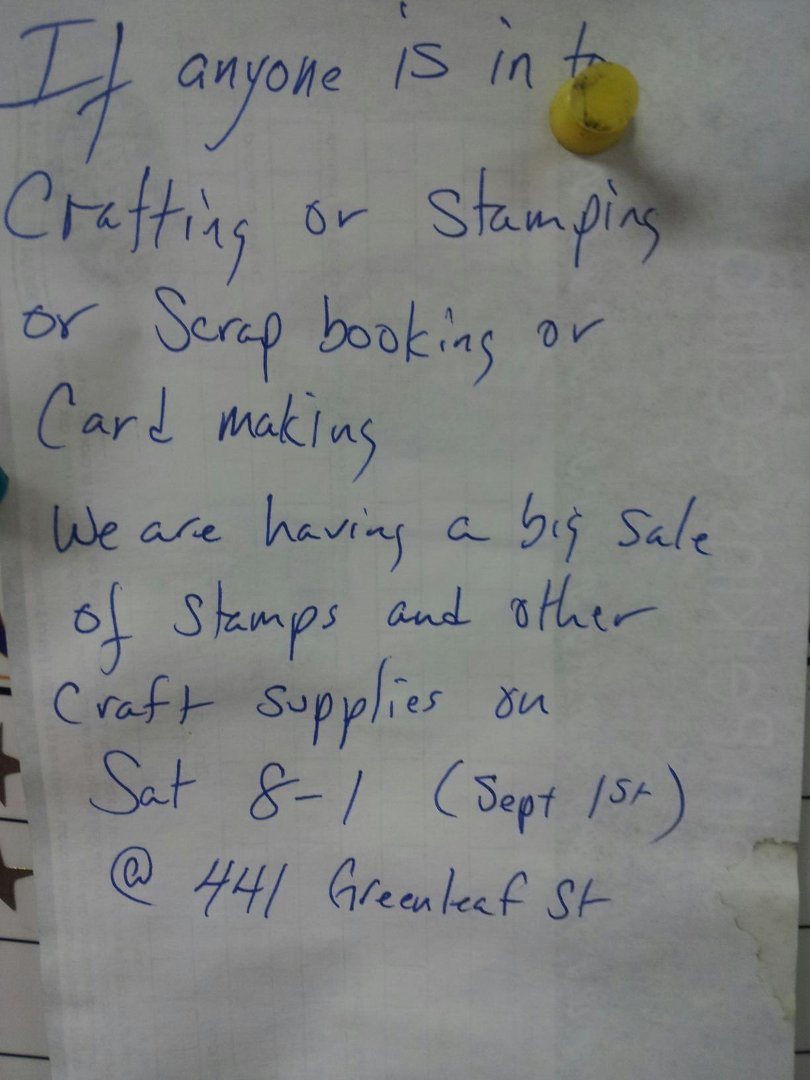 If anyone is in to
Crafting or Stamping
or Scrap booking or
Card making
We are having a big Sale
of Stamps and other
Craft supplies on
Sat 8-1 (Sept 1st)
@ 441 Greenleaf St